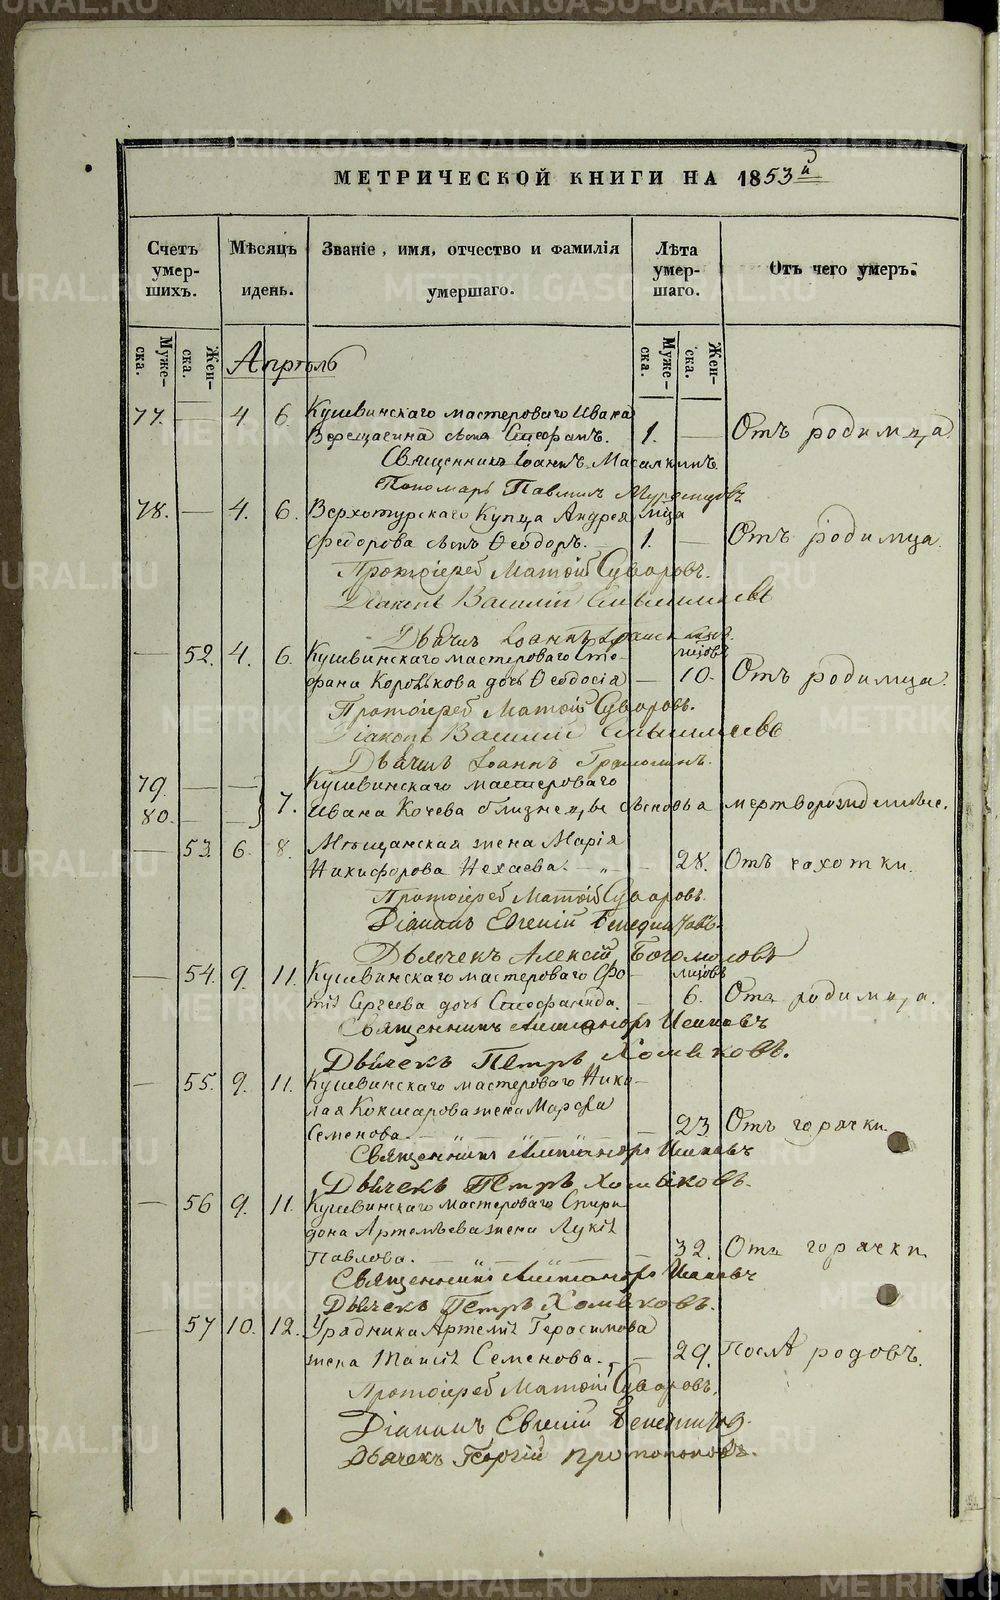 МЕТРИЧЕСКОЙ КНИГИ НА 1853й
Счетъ умер-шихъ. Мѣсяцъ идень. Званіе, имя, отчество и фамилія умершаго. Лѣта умер-шаго. Отъ чего умеръ.
Муже-ска. Жен-ска. Муже-ска. Жен-ска.
Апрѣль
77. — 4 6. Кушвинскаго мастероваго Ивана
Верещагина сынъ Стефанъ. 1. — Отъ родимца.
Священникъ Іоаннъ
Пономарь Павлинъ
78. — 4. 6. Верхотурскаго Купца Андрея мца
Федорова сынъ Ѳеодоръ. 1. — Отъ родимца.
Протоіерей Матѳій Суворовъ.
Діаконъ Василій
Дьячекъ Іоаннъ
— 52. 4. 6. Кушвинскаго мастероваго Сте-
фана Коровькова дочь Ѳеодосія — 10. Отъ родимца.
Протоіерей Матѳій Суворовъ.
Діаконъ Василій
Дьячекъ Іоаннъ
79. — — Кушвинскаго мастероваго
80. — — 7. Ивана Кочева близнецы сыновья мертворожденные.
— 53. 6. 8. Мѣщанская жена Марія
Никифорова Нехаева. — „ — 28. Отъ чахотки.
Протоіерей Матѳій Суворовъ.
Діаконъ Евгеній
Дьячекъ Алексій Богомоловъ
— 54. 9. 11. Кушвинскаго мастероваго Фо-
тія Сергеева дочь Стефанида. — 6. Отъ родимца.
Священникъ Александръ
Дьячекъ Петръ Хомяковъ.
— 55. 9. 11. Кушвинскаго мастероваго Нико-
лая Кокшарова жена Марфа
Семенова. — 23 Отъ горячки
Священникъ Александръ
Дьячекъ Петръ Хомяковъ.
— 56 9. 11. Кушвинскаго мастероваго Спири-
дона Артемьева жена Лукія
Павлова. — „ — 32. Отъ горячки
Священникъ Александръ
Дьячекъ Петръ Хомяковъ.
— 57 10. 12. Урядника Артемія Герасимова
жена Таисія Семенова. — 29. Послѣ родовъ.
Протоіерей Матѳій Суворовъ.
Діаконъ Евгеній
Дьячекъ Георгій Протопоповъ.
METRIKI.GASO-URAL.RU